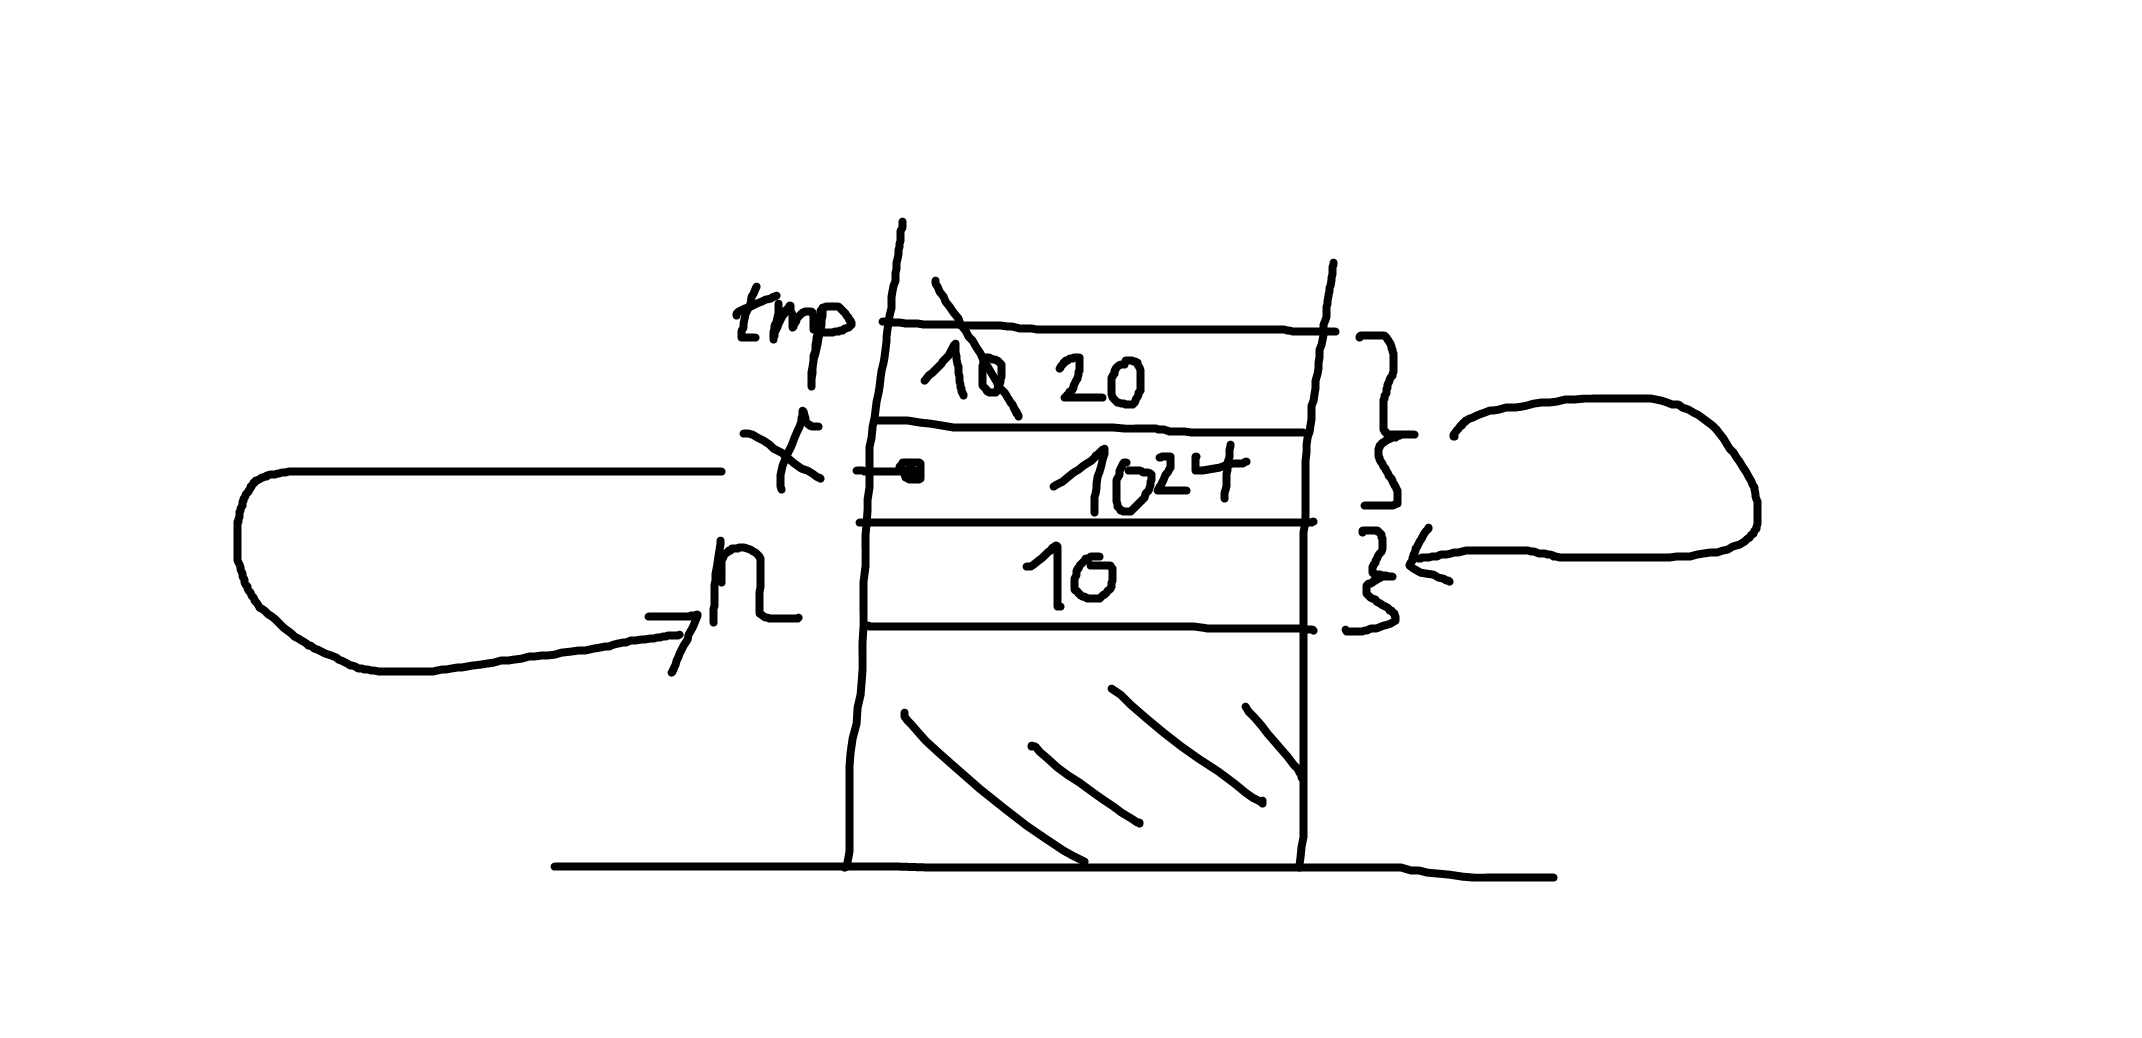 tmp 10 20
x 1024
n 10